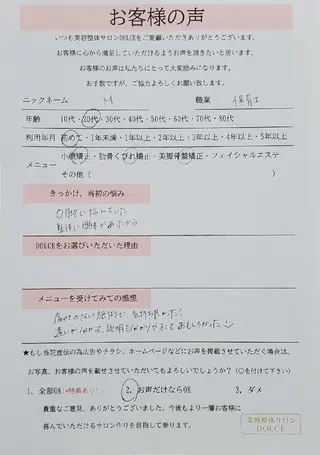 お客様の声
いつも美容整体サロンDOLCEをご愛顧いただきありがとうございます。
お客様に心から満足していただけるようお声を頂きたいと思います。
お客様のお声は私たちにとって大変励みになります。
お手数ですが、ご協力よろしくお願い致します。
ニックネーム M 職業 保育士
年齢 10代・20代・30代・40代・50代・60代・70代・80代
利用年月 初めて・1年未満・1年以上・2年以上・3年以上・4年以上・5年以上
メニュー 小顔矯正・肋骨くびれ矯正・美脚骨盤矯正・フェイシャルエステ
その他（
きっかけ、当初の悩み
O脚に悩んでいた
整体に興味があったから
DOLCEをお選びいただいた理由
メニューを受けてみての感想
痛みのない施術で、気持ち良かった！
違いが分かって、説明も分かりやすくておもしろかった
★もし当院宣伝の為広告やチラシ、ホームページなどにお声を掲載させていただく場合は、
お写真、お客様の声を載せさせていただいてもよろしいでしょうか？（○を付けて下さい）
1、全部OK（★特典あり） 2、お声だけならOK 3、ダメ
貴重なご意見、ありがとうございました。今後もより一層お客様に
喜んでいただけるサロン作りを目指して参ります。
美容整体サロン
DOLCE